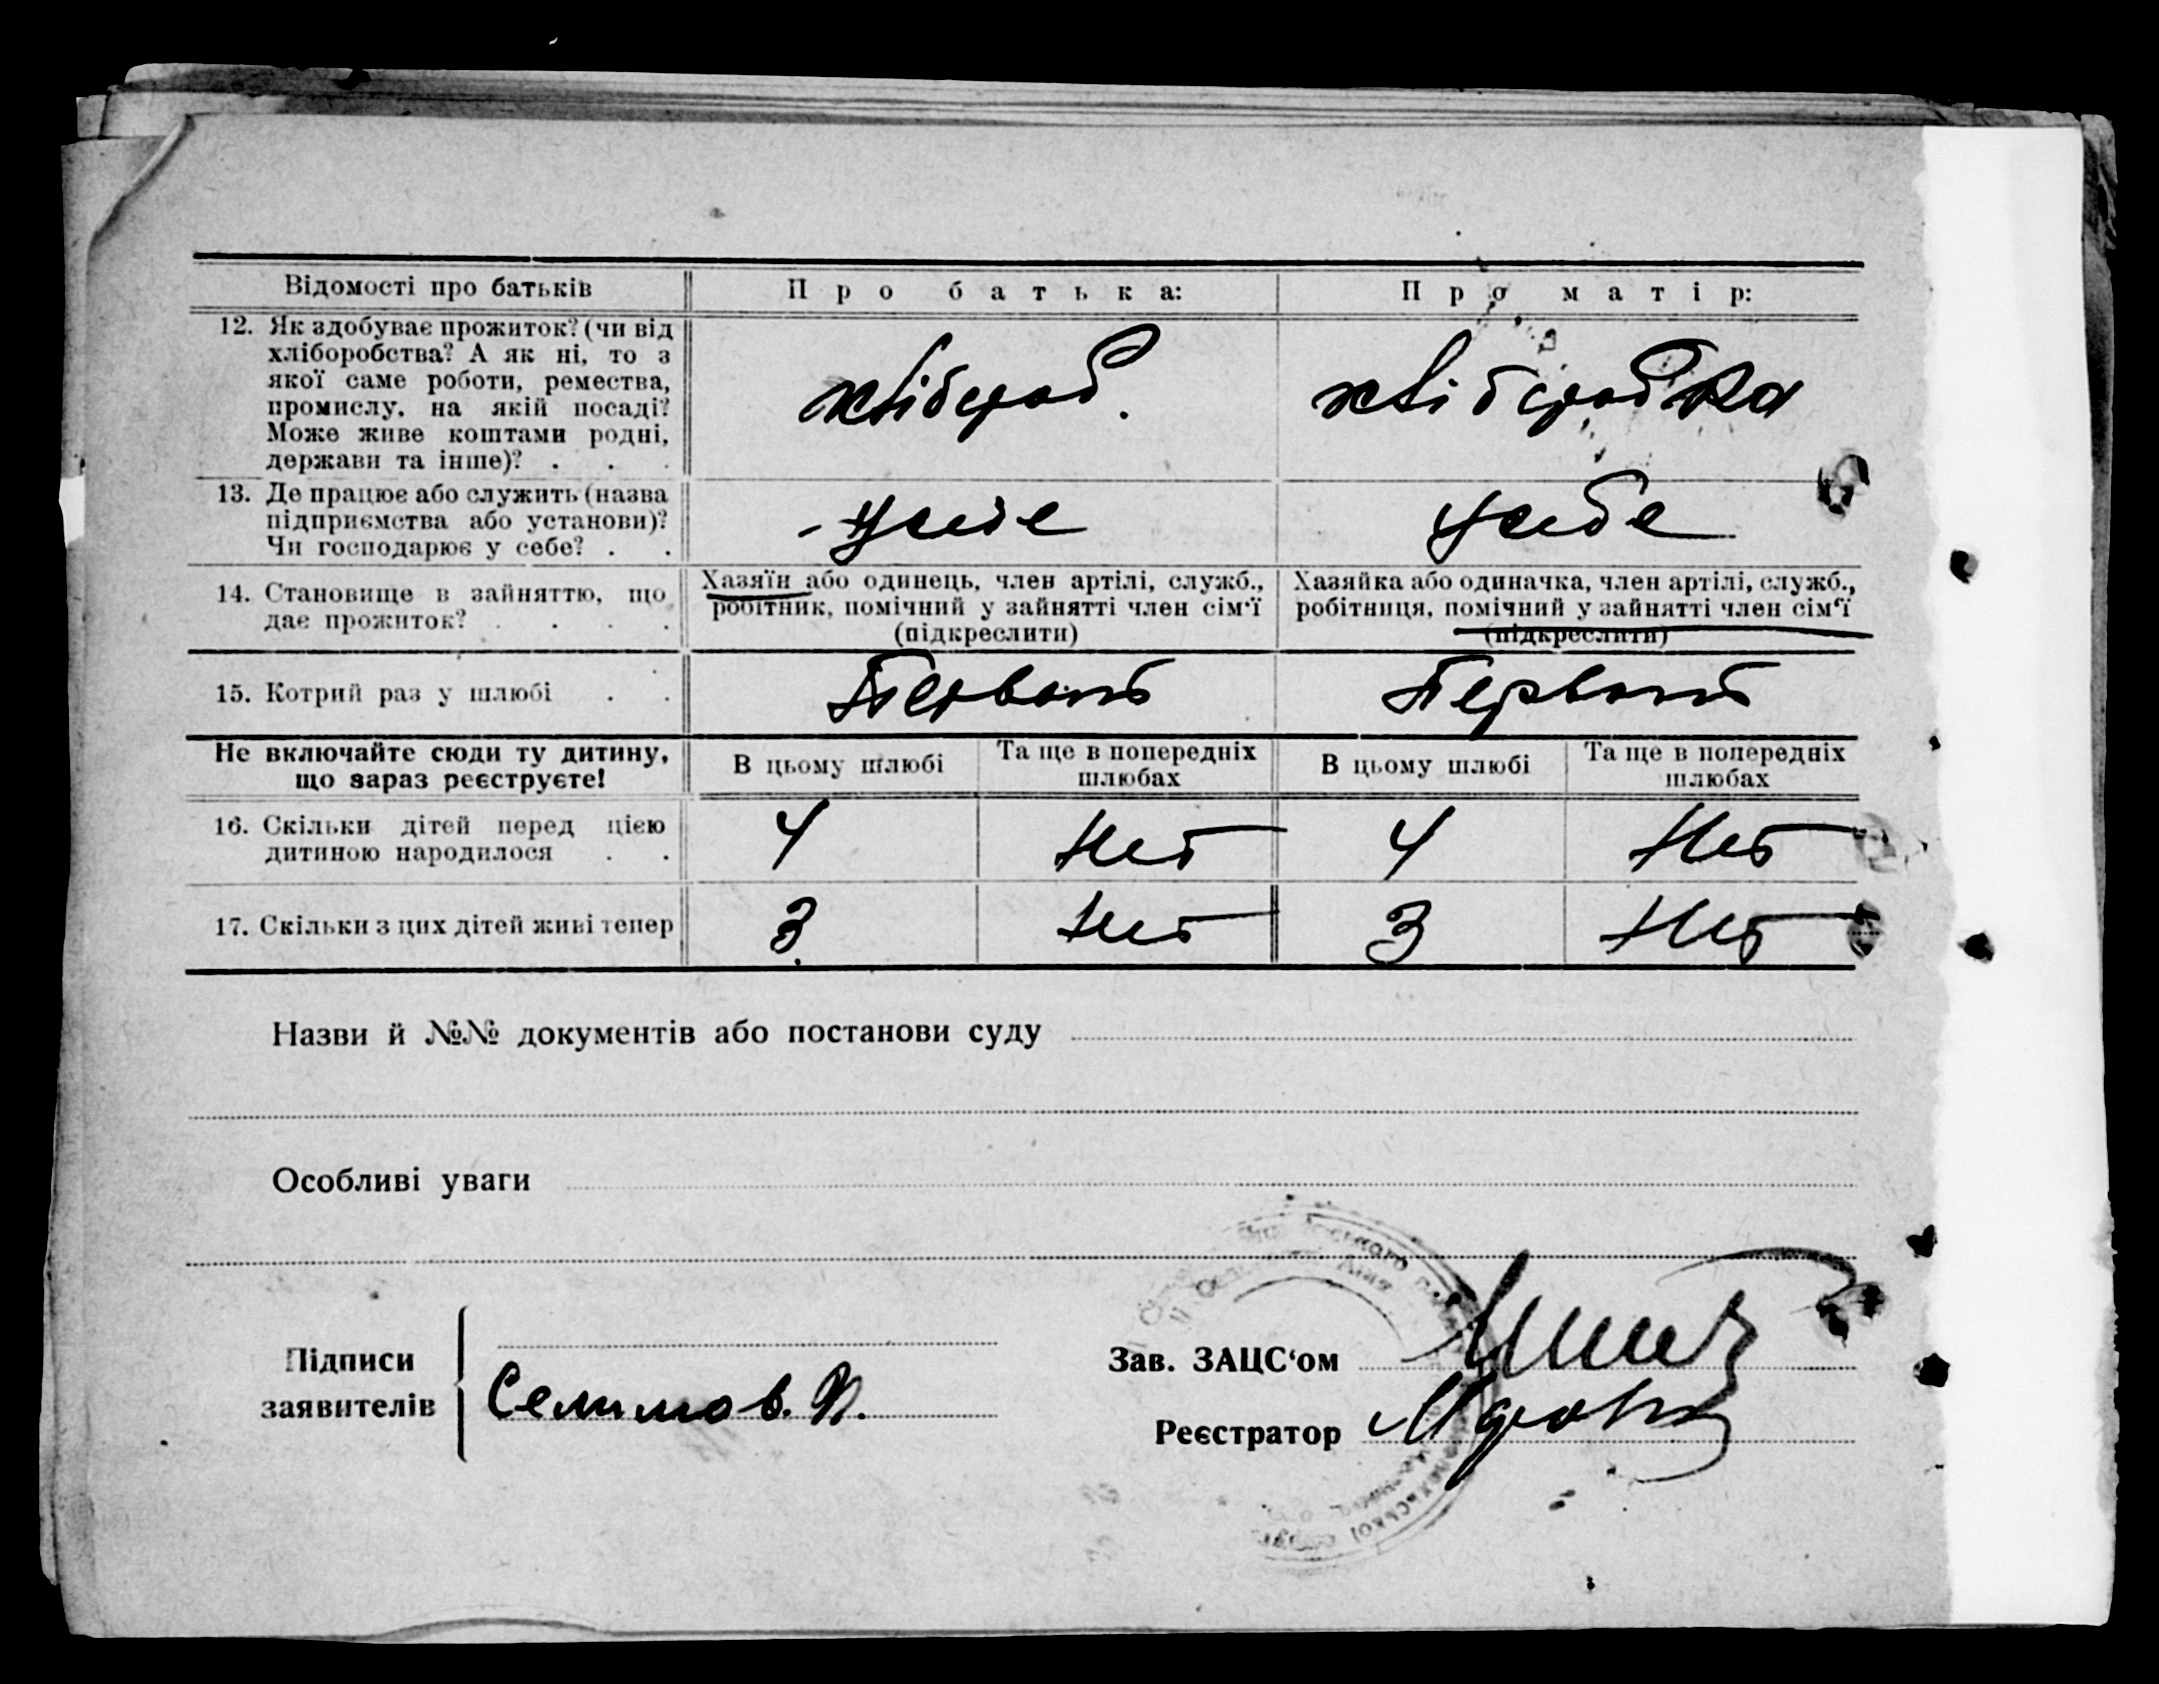 Відомості про батьків Про батька: Про матір:
12. Як здобуває прожиток? (чи від
хліборобства? А як ні, то з
якої саме роботи, ремества,
промислу, на якій посаді?
Може живе коштами родні,
держави та інше)? . . .
хлібороб. хліборобка
13. Де працює або служить (назва
підприємства або установи)?
Чи господарює у себе? . .
у себе у себе
14. Становище в зайняттю, що
дає прожиток? . . . .
Хазяїн або одинець, член артілі, служб.,
робітник, помічний у зайнятті член сім'ї
(підкреслити)
Хазяйка або одиначка, член артілі, служб.,
робітниця, помічний у зайнятті член сім'ї
(підкреслити)
15. Котрий раз у шлюбі . .
Первый Первый
Не включайте сюди ту дитину,
що зараз реєструєте!
В цьому шлюбі
Та ще в попередніх
шлюбах
В цьому шлюбі
Та ще в попередніх
шлюбах
16. Скільки дітей перед цією
дитиною народилося . .
4 Нет 4 Нет
17. Скільки з цих дітей живі тепер
3 Нет 3 Нет
Назви й №№ документів або постанови суду
Особливі уваги
Підписи
заявителів
Селимов.
Зав. ЗАЦС'ом
Реєстратор